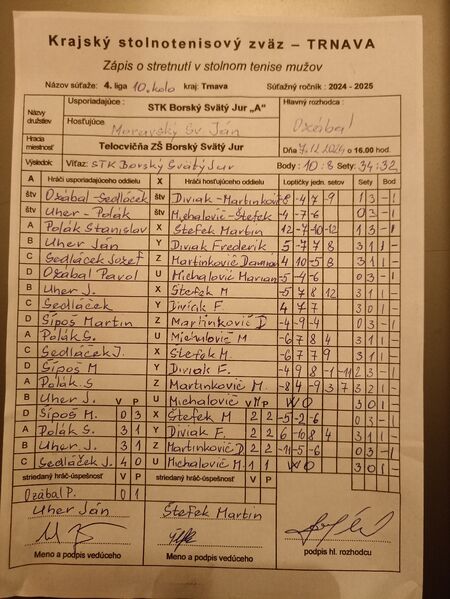 Krajský stolnotenisový zväz – TRNAVA
Zápis o stretnutí v stolnom tenise mužov
Názov súťaže: 4. liga 10. kolo kraj: Trnava Súťažný ročník : 2024 - 2025
Názvy družstiev Usporiadajúce : STK Borský Svätý Jur „A“ Hlavný rozhodca :
Hosťujúce : Moravský Sv. Ján Ožábal
Hrada miestnosť Telocvičňa ZŠ Borský Svätý Jur Dňa 7.12.2024 o 16.00 hod.
Výsledok Víťaz: STK Borský Svätý Jur Body : 10 : 8 Sety: 34:32
A Hráči usporiadajúceho oddielu X Hráči hosťujúceho oddielu Loptičky jedn. setov Sety Bod
štv Ožábal - Sedláček štv Diviak - Martinkovič 8 -4 -7 -9 1 3 - 1
štv Uher - Polák štv Michalovič - Štefek -4 -7 -6 0 3 - 1
A Polák Stanislav X Štefek Martin 12 -7 -10 -12 1 3 - 1
B Uher Ján Y Diviak Frederik 5 -7 7 8 3 1 1 -
C Sedláček Jozef Z Martinkovič Damian 4 10 -5 8 3 1 1 -
D Ožábal Pavol U Michalovič Marian -5 -4 -6 0 3 - 1
B Uher J. X Štefek M -5 7 8 12 3 1 1 -
C Sedláček Y Diviak F. 4 7 7 3 0 1 -
D Šípoš Martin Z Martinkovič D -4 -9 -4 0 3 - 1
A Polák S. U Michalovič M -6 7 8 4 3 1 1 -
C Sedláček J. X Štefek M. -6 7 7 9 3 1 1 -
D Šípoš M Y Diviak F. -4 9 8 -1 -11 2 3 - 1
A Polák S Z Martinkovič M -8 4 -9 3 7 3 2 1 -
B Uher J. V P U Michalovič M V P WO 3 0 1 -
D Šípoš M. 0 3 X Štefek M 2 2 -5 -2 -6 0 3 - 1
A Polák S. 3 1 Y Diviak F. 2 2 6 -10 8 4 3 1 1 -
B Uher J. 3 1 Z Martinkovič D 2 2 -11 -5 -6 0 3 - 1
C Sedláček J. 4 0 U Michalovič M. 1 1 WO 3 0 1 -
striedaný hráč-úspešnosť V P striedaný hráč-úspešnosť V P
Ožábal P. 0 1
Uher Ján Štefek Martin
Meno a podpis vedúceho Meno a podpis vedúceho podpis hl. rozhodcu